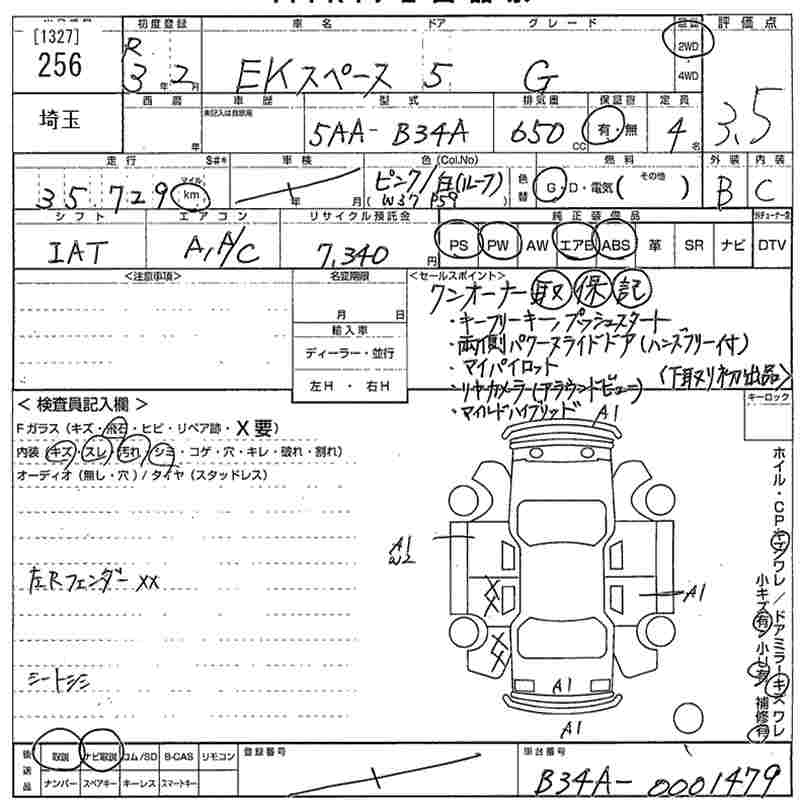 [1327]
256
埼玉
初度登録
R 3年 2月
車名 ドア グレード
EKスペース 5 G
2WD
4WD
評価点
3.5
西暦 年
車歴
未記入は自家用
型式
5AA-B34A
排気量
650 CC
保証書
有・無
定員
4名
走行 S#*
35,729 マイル km
車検
年 月
色(Col.No)
ピンク/白(ルーフ)
(W37 P59)
色替
燃料
G・D・電気( その他 )
外装 内装
B C
シフト
IAT
エアコン
A,A/C
リサイクル預託金
7,340円
純正装備品
PS PW AW エアB ABS 革 SR ナビ DTV
<注意事項>
名変期限
月 日
輸入車
ディーラー・並行
左H ・ 右H
<セールスポイント>
ワンオーナー 取 保 記
・キーフリーキー/プッシュスタート
・両側パワースライドドア(ハンズフリー付)
・マイパイロット
・リヤカメラ(アラウンドビュー)
・マイルドハイブリッド
〈下取り初出品〉
キーロック
<検査員記入欄>
Fガラス(キズ・飛石・ヒビ・リペア跡・X要)
内装(キズ・スレ・汚れ・シミ・コゲ・穴・キレ・破れ・割れ)
オーディオ(無し・穴)/タイヤ(スタッドレス)
左Rフェンダー XX
シートシミ
A1
A1
W2
XX
A1
XX
A1
A1
ホイル・CPキズワレ/ドアミラーキズワレ
小キズ有 小U有 補修有
後送品
取説 ナビ取説 コム/SD B-CAS リモコン
ナンバー スペアキー キーレス スマートキー
登録番号
車台番号
B34A-0001479